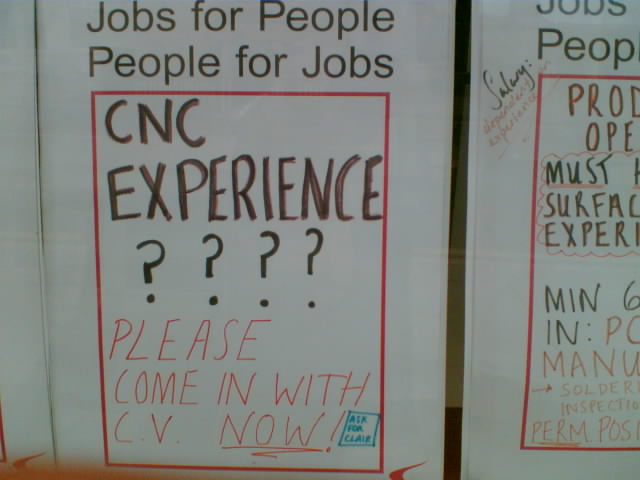 Jobs for People
People for Jobs
CNC
EXPERIENCE
? ? ? ?
PLEASE
COME IN WITH
C.V. NOW!
ASK
FOR
CLAIR
Jobs
Peopl
Salary:
depending on
experience
PROD
OPE
MUST H
SURFAC
EXPERI
MIN 6
IN: PC
MANU
→ SOLDERI
INSPECTIO
PERM. POSI